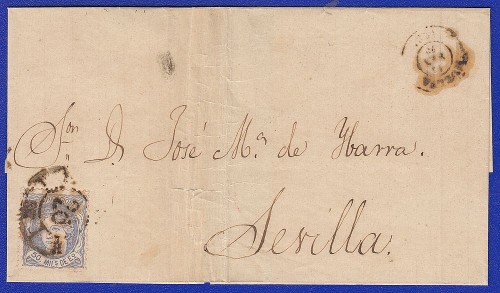 Sr. Dn. José Ma. de Ybarra.
Sevilla.
50 MILS. DE E.